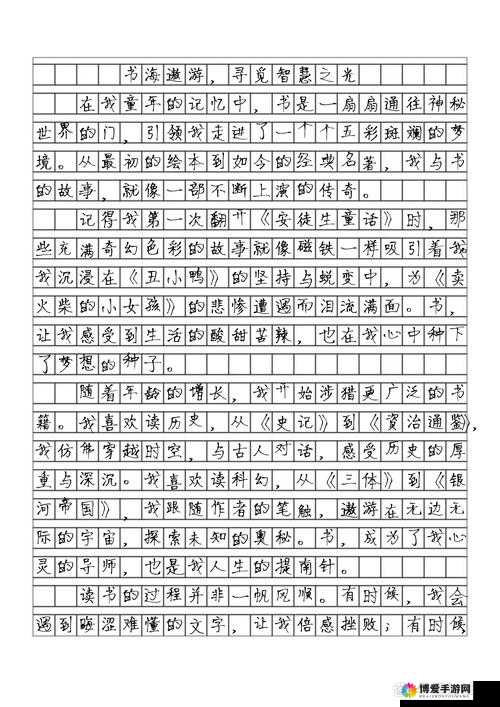 书海遨游，寻觅智慧之光
在我童年的记忆中，书是一扇扇通往神秘
世界的门，引领我走进了一个个五彩斑斓的梦
境。从最初的绘本到如今的经典名著，我与书
的故事，就像一部不断上演的传奇。
记得我第一次翻开《安徒生童话》时，那
些充满奇幻色彩的故事就像磁铁一样吸引着我
我沉浸在《丑小鸭》的坚持与蜕变中，为《卖
火柴的小女孩》的悲惨遭遇而泪流满面。书，
让我感受到生活的酸甜苦辣，也在我心中种下
了梦想的种子。
随着年龄的增长，我开始涉猎更广泛的书
籍。我喜欢读历史，从《史记》到《资治通鉴》，
我仿佛穿越时空，与古人对话，感受历史的厚
重与深沉。我喜欢读科幻，从《三体》到《银
河帝国》，我跟随作者的笔触，遨游在无边无
际的宇宙，探索未知的奥秘。书，成为了我心
灵的导师，也是我人生的指南针。
读书的过程并非一帆风顺。有时候，我会
遇到晦涩难懂的文字，让我倍感挫败；有时候，
博爱手游网